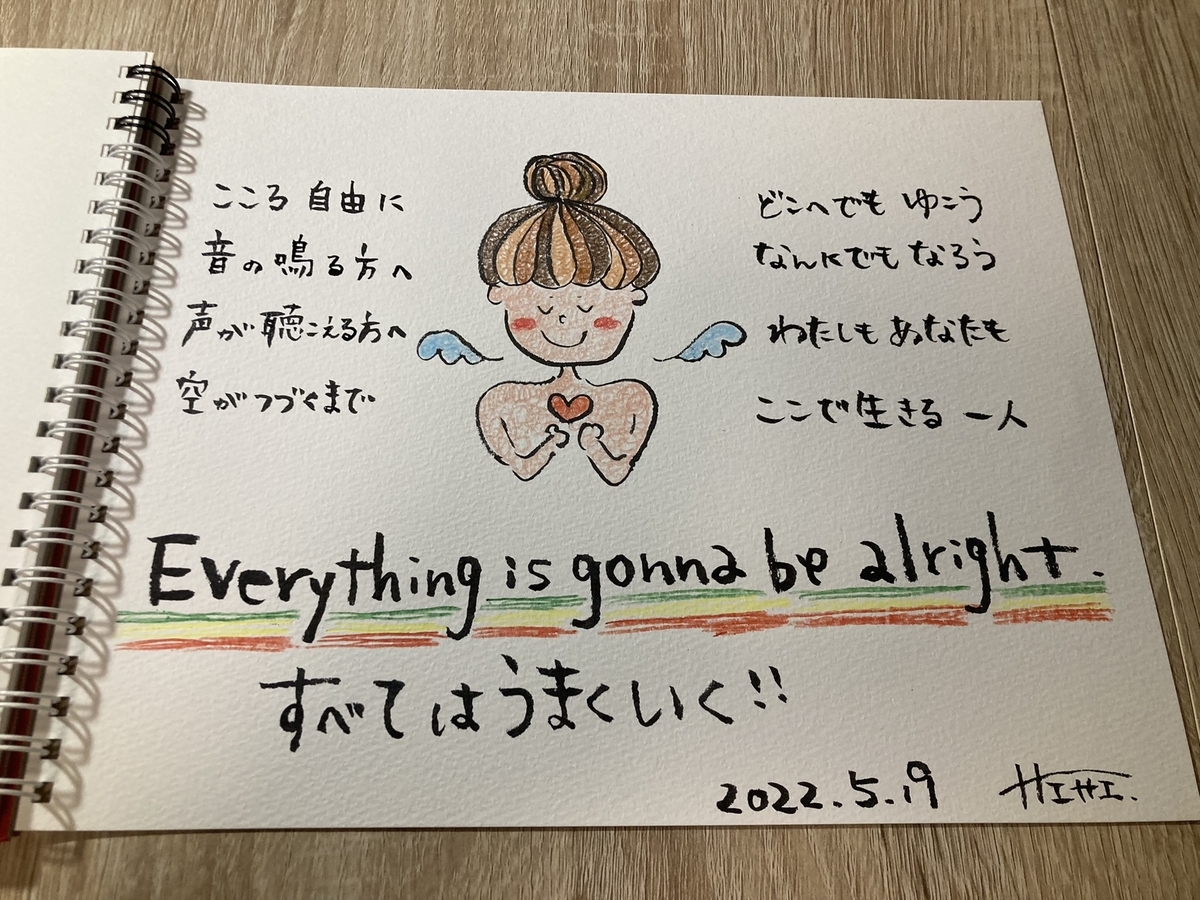 こころ 自由に
音の鳴る方へ
声が聴こえる方へ
空がつづくまで
どこへでも ゆこう
なんにでも なろう
わたしも あなたも
ここで生きる 一人
Everything is gonna be alright.
すべてはうまくいく!!
2022.5.19